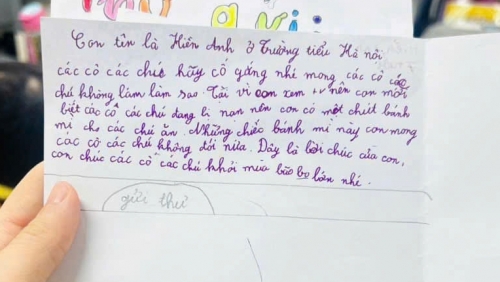 Con tên là Hiền Anh ở Trường tiểu Hà nội
các cô các chú hãy cố gắng nhé mong các cô các
chú không làm làm sao. Tại vì con xem tv nên con mới
biết các cô các chú đang bị nạn nên con có một chút bánh
mì cho các chú ăn. Những chiếc bánh mì này con mong
các cô các chú không đói nữa. Đây là lời chúc của con,
con chúc các cô các chú khỏi mưa bão bo lớn nhé.
gửi thư